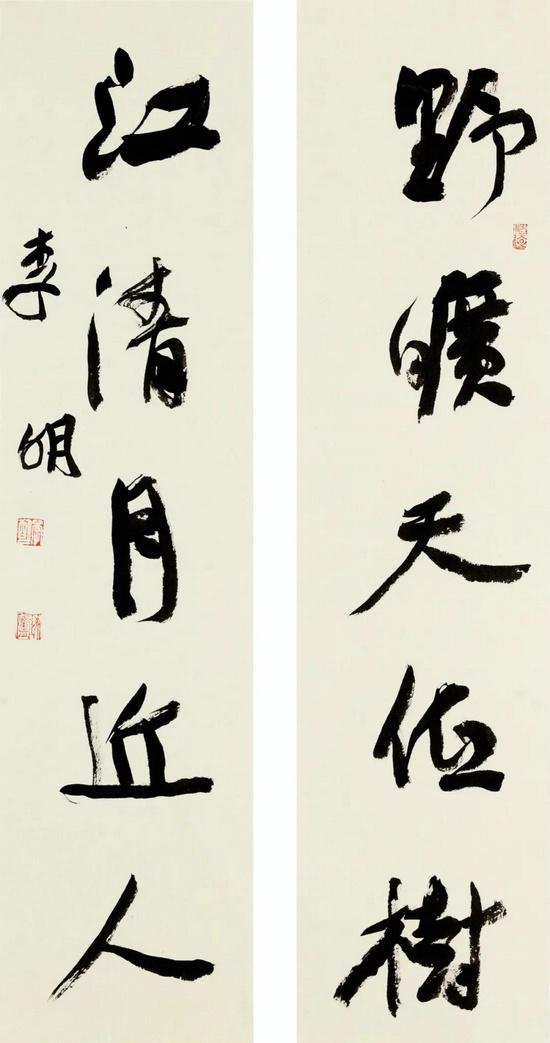 野曠天低樹
江清月近人
李明